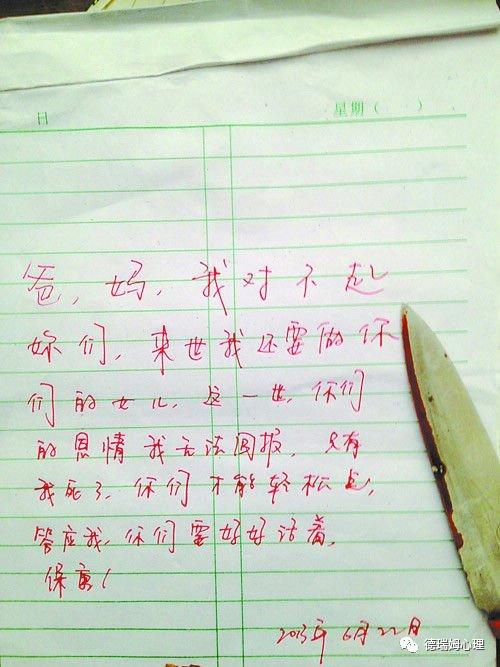 日 星期（ ）
爸，妈，我对不起
你们，来世我还要做你
们的女儿，这一世，你们
的恩情我无法回报，只有
我死了，你们才能轻松点，
答应我，你们要好好活着，
保重！
2013年6月22日
德瑞姆心理